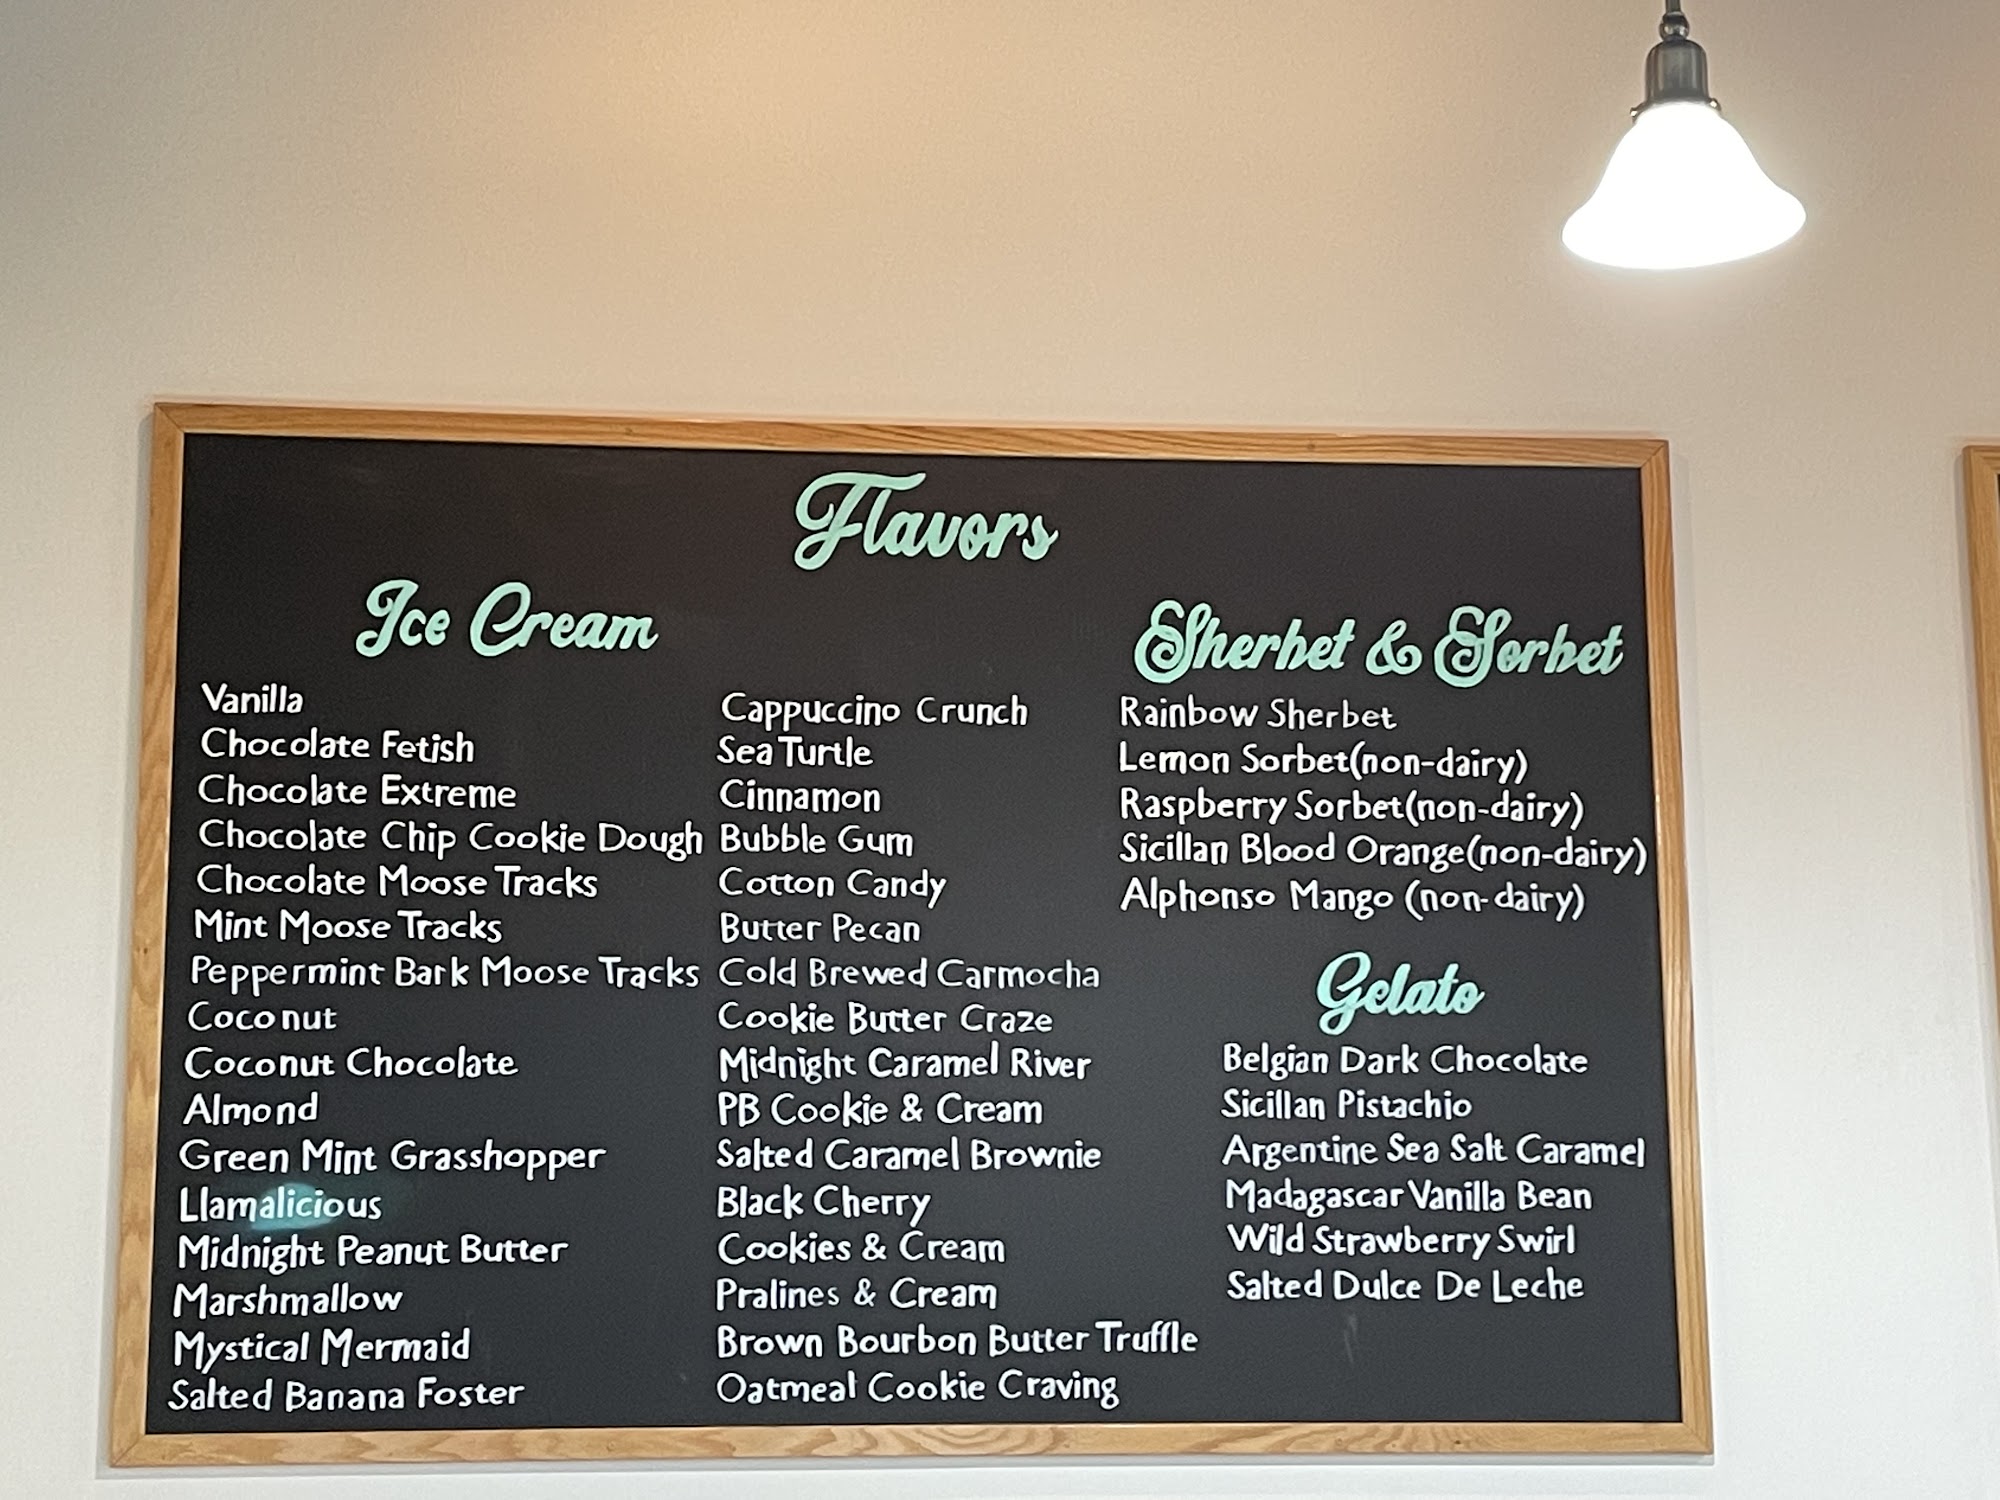 Flavors
Ice Cream
Vanilla
Chocolate Fetish
Chocolate Extreme
Chocolate Chip Cookie Dough
Chocolate Moose Tracks
Mint Moose Tracks
Peppermint Bark Moose Tracks
Coconut
Coconut Chocolate
Almond
Green Mint Grasshopper
Llamalicious
Midnight Peanut Butter
Marshmallow
Mystical Mermaid
Salted Banana Foster
Cappuccino Crunch
Sea Turtle
Cinnamon
Bubble Gum
Cotton Candy
Butter Pecan
Cold Brewed Carmocha
Cookie Butter Craze
Midnight Caramel River
PB Cookie & Cream
Salted Caramel Brownie
Black Cherry
Cookies & Cream
Pralines & Cream
Brown Bourbon Butter Truffle
Oatmeal Cookie Craving
Sherbet & Sorbet
Rainbow Sherbet
Lemon Sorbet(non-dairy)
Raspberry Sorbet(non-dairy)
Sicillan Blood Orange(non-dairy)
Alphonso Mango (non-dairy)
Gelato
Belgian Dark Chocolate
Sicillan Pistachio
Argentine Sea Salt Caramel
Madagascar Vanilla Bean
Wild Strawberry Swirl
Salted Dulce De Leche